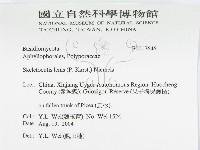 國立自然科學博物館
NATIONAL MUSEUM OF NATURAL SCIENCE
TAICHUNG, TAIWAN, R.O. CHINA
Basidiomycota
Aphyllophorales, Polyporaceae
Skeletocutis lenis (P. Karst.) Niemela
Loc. China, Xinjiang Uygur Autonomous Region, Huocheng
County Reserve
on fallen trunk of Picea
Coll. Y.L. Wei No. Wei 1524
Date Aug. 19, 2004
Det. Y.L. Wei